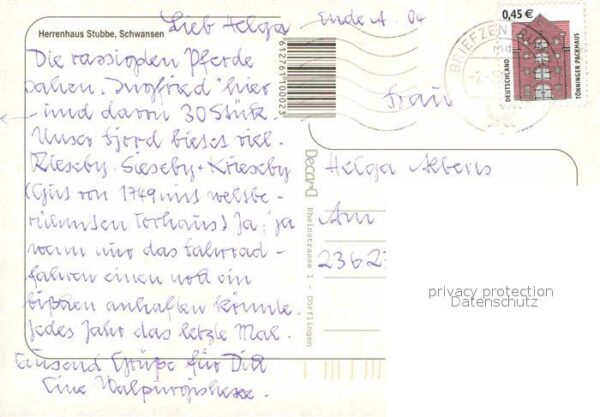 Herrenhaus Stubbe, Schwansen
Lieb Helga Ende A. 04
Die rassigsten Pferde
sahen "Ingfried" hier
und davon 30 Stück.
Unser Fjord bietet viel.
Rieseby, Sieseby + Krieseby
(Gut von 1749 mit weltbe-
rühmtem Torhaus) Ja, ja
wenn nur das Fahrrad-
fahren einen noch ein
bißchen anhalten könnte.
Jedes Jahr das letzte Mal.
Tausend Grüße für Dich
Eine Walpurgishexe.
612761 100023
Decard
Rheinstrasse 1 -
BRIEFZEN
0,45 €
DEUTSCHLAND
TÖNNINGER PACKHAUS
Frau
Helga
Am
23623
privacy protection
Datenschutz